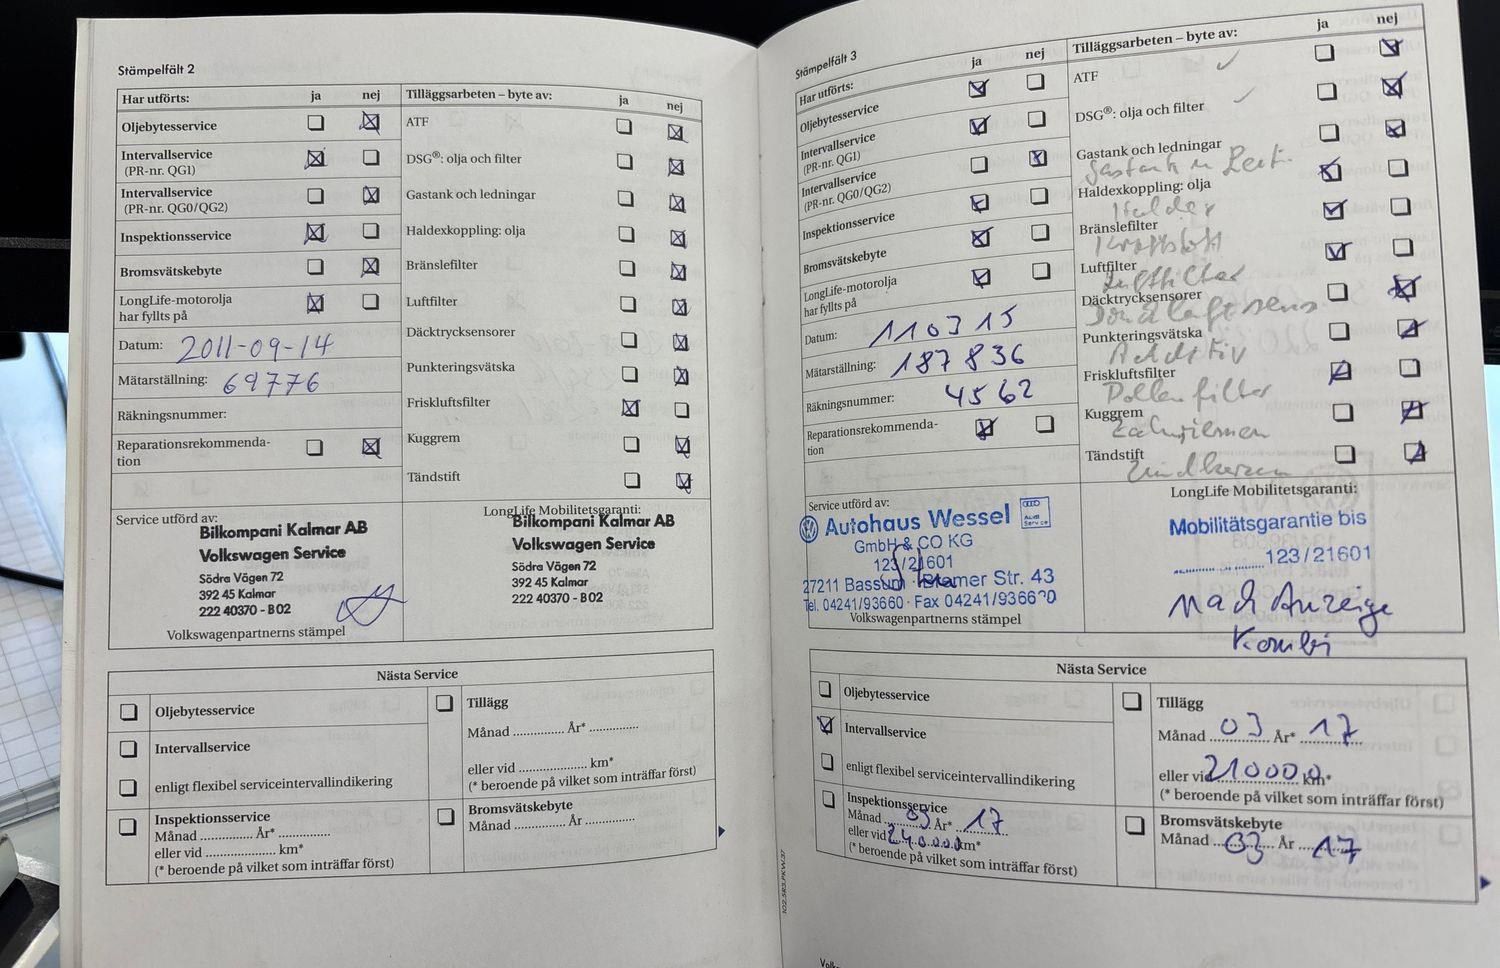 Stämpelfält 2
Har utförts: ja nej
Oljebytesservice
Intervallservice
(PR-nr. QG1)
Intervallservice
(PR-nr. QG0/QG2)
Inspektionsservice
Bromsvätskebyte
LongLife-motorolja
har fyllts på
Datum: 2011-09-14
Mätarställning: 69776
Räkningsnummer:
Reparationsrekommenda-
tion
Tilläggsarbeten – byte av: ja nej
ATF
DSG®: olja och filter
Gastank och ledningar
Haldexkoppling: olja
Bränslefilter
Luftfilter
Däcktrycksensorer
Punkteringsvätska
Friskluftsfilter
Kuggrem
Tändstift
Service utförd av:
Bilkompani Kalmar AB
Volkswagen Service
Södra Vägen 72
392 45 Kalmar
222 40370 - B02
Volkswagenpartnerns stämpel
LongLife Mobilitetsgaranti:
Bilkompani Kalmar AB
Volkswagen Service
Södra Vägen 72
392 45 Kalmar
222 40370 - B02
Nästa Service
Oljebytesservice
Intervallservice
enligt flexibel serviceintervallindikering
Inspektionsservice
Månad .............. År* ..............
eller vid ................... km*
(* beroende på vilket som inträffar först)
Tillägg
Månad .............. År* .............
eller vid ................... km*
(* beroende på vilket som inträffar först)
Bromsvätskebyte
Månad .............. År .............
Stämpelfält 3
Har utförts: ja nej
Oljebytesservice
Intervallservice
(PR-nr. QG1)
Intervallservice
(PR-nr. QG0/QG2)
Inspektionsservice
Bromsvätskebyte
LongLife-motorolja
har fyllts på
Datum: 110315
Mätarställning: 187836
Räkningsnummer: 4562
Reparationsrekommenda-
tion
Tilläggsarbeten – byte av: ja nej
ATF
DSG®: olja och filter
Gastank och ledningar
Gastank
Haldexkoppling: olja
Haldex
Bränslefilter
Kraftstoff
Luftfilter
Luftfilter
Däcktrycksensorer
Punkteringsvätska
Additiv
Friskluftsfilter
Pollenfilter
Kuggrem
Zahnriemen
Tändstift
Zündkerzen
Service utförd av:
Autohaus Wessel
Audi
Service
GmbH & CO KG
123/21601
27211 Bassum · Bramer Str. 43
Tel. 04241/93660 · Fax 04241/936620
Volkswagenpartnerns stämpel
LongLife Mobilitetsgaranti:
Mobilitätsgarantie bis
123/21601
nach Anzeige
Kombi
Nästa Service
Oljebytesservice
Intervallservice
enligt flexibel serviceintervallindikering
Inspektionsservice
Månad 03 År* 17
eller vid 240000 km*
(* beroende på vilket som inträffar först)
Tillägg
Månad 03 År* 17
eller vid 210000 km*
(* beroende på vilket som inträffar först)
Bromsvätskebyte
Månad 03 År 17
102.5R3.PKW.37